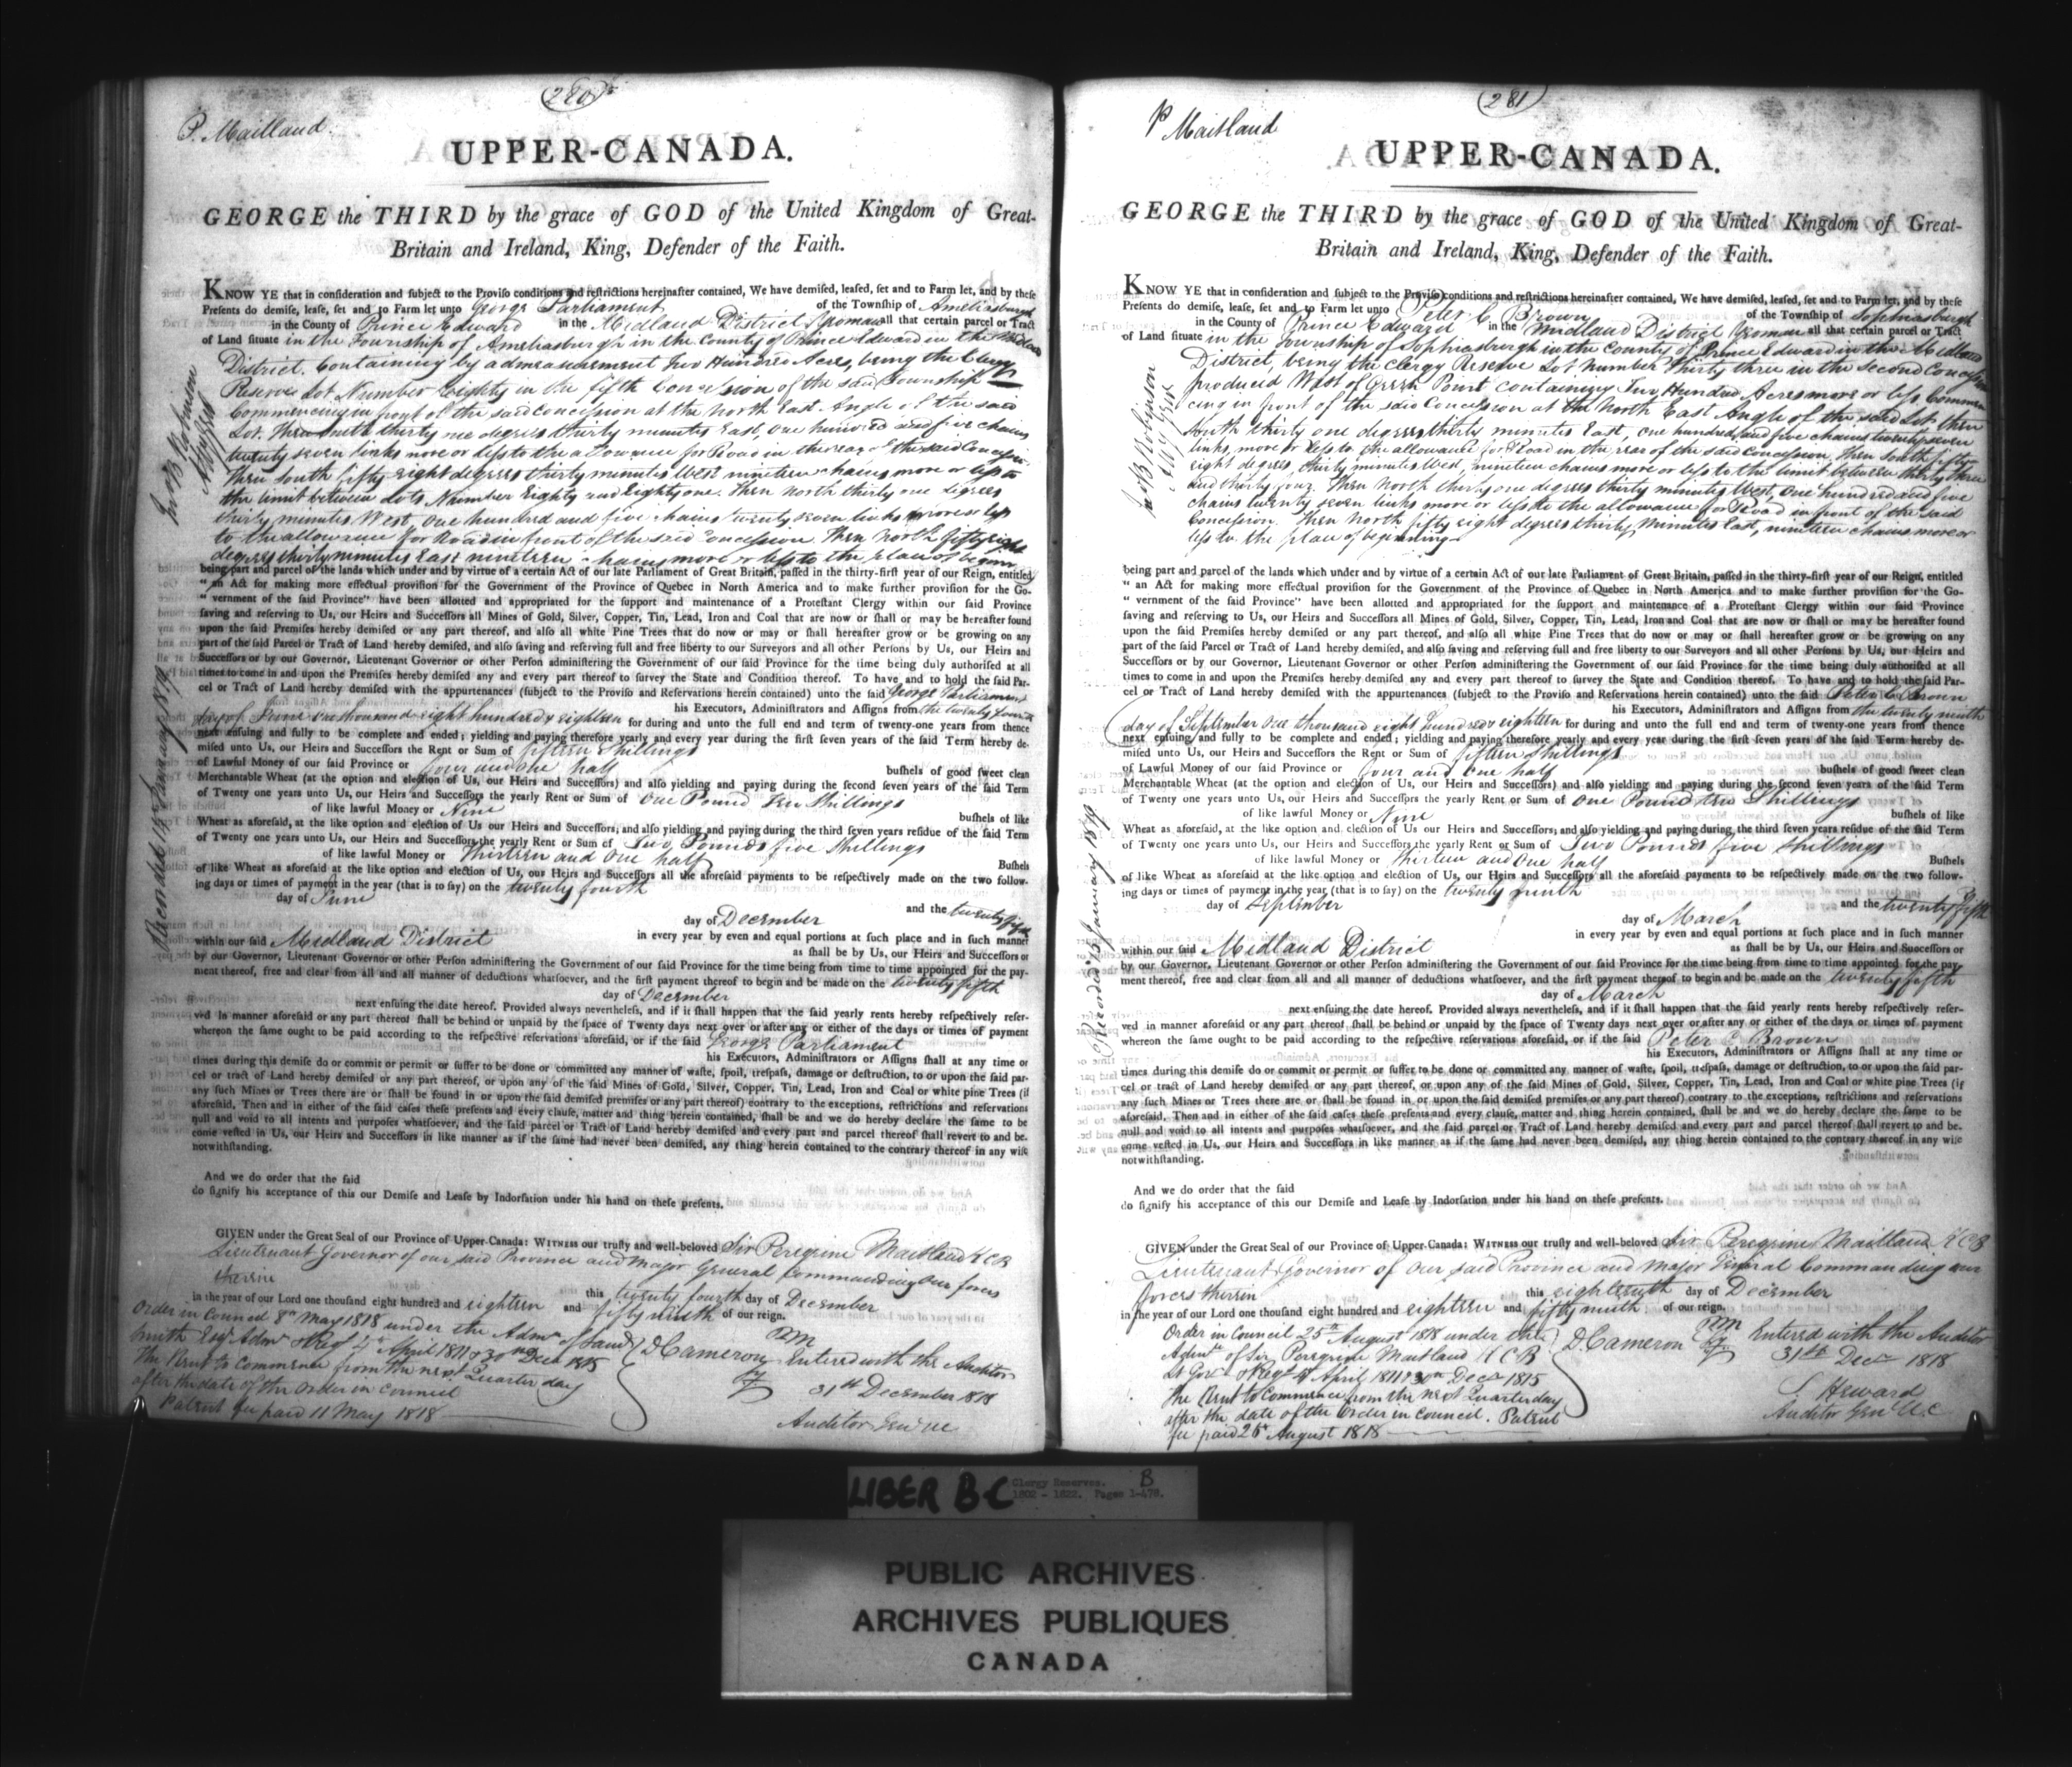 280
P. Maitland
UPPER-CANADA.
GEORGE the THIRD by the grace of GOD of the United Kingdom of Great-
Britain and Ireland, King, Defender of the Faith.
KNOW YE that in consideration and subject to the Proviso conditions and restrictions hereinafter contained, We have demised, leased, set and to Farm let, and by these
Presents do demise, lease, set and to Farm let unto George Parliament of the Township of Ameliasburgh
in the County of Prince Edward in the Midland District Yeoman all that certain parcel or Tract
of Land situate in the Township of Ameliasburgh in the County of Prince Edward in the Midland
District. Containing by admeasurement Two Hundred Acres, being the Clergy
Reserve Lot Number Eighty in the fifth Concession of the said Township
Commencing in front of the said Concession at the North East Angle of the said
Lot. Then South thirty one degrees thirty minutes East, one hundred and five chains
twenty seven links more or less to the allowance for Road in the rear of the said Concession
Then South fifty eight degrees thirty minutes West nineteen chains more or less to
the limit between Lots Number Eighty and Eighty one. Then North thirty one degrees
thirty minutes West, one hundred and five chains twenty seven links more or less
to the allowance for Road in front of the said Concession. Then North fifty eight
degrees thirty minutes East nineteen chains more or less to the place of beginn
being part and parcel of the lands which under and by virtue of a certain Act of our late Parliament of Great Britain, passed in the thirty-first year of our Reign, entitled
" an Act for making more effectual provision for the Government of the Province of Quebec in North America and to make further provision for the Go-
" vernment of the said Province" have been allotted and appropriated for the support and maintenance of a Protestant Clergy within our said Province
saving and reserving to Us, our Heirs and Successors all Mines of Gold, Silver, Copper, Tin, Lead, Iron and Coal that are now or shall or may be hereafter found
upon the said Premises hereby demised or any part thereof, and also all white Pine Trees that do now or may or shall hereafter grow or be growing on any
part of the said Parcel or Tract of Land hereby demised, and also saving and reserving full and free liberty to our Surveyors and all other Persons by Us, our Heirs and
Successors or by our Governor, Lieutenant Governor or other Person administering the Government of our said Province for the time being duly authorised at all
times to come in and upon the Premises hereby demised any and every part thereof to survey the State and Condition thereof. To have and to hold the said Par-
cel or Tract of Land hereby demised with the appurtenances (subject to the Proviso and Reservations herein contained) unto the said George Parliament
his Executors, Administrators and Assigns from the twenty fourth
day of June one thousand eight hundred & eighteen for during and unto the full end and term of twenty-one years from thence
next ensuing and fully to be complete and ended; yielding and paying therefore yearly and every year during the first seven years of the said Term hereby de-
mised unto Us, our Heirs and Successors the Rent or Sum of fifteen Shillings
of Lawful Money of our said Province or four and one half bushels of good sweet clean
Merchantable Wheat (at the option and election of Us, our Heirs and Successors) and also yielding and paying during the second seven years of the said Term
of Twenty one years unto Us, our Heirs and Successors the yearly Rent or Sum of One Pound ten Shillings
of like lawful Money or Nine bushels of like
Wheat as aforesaid, at the like option and election of Us our Heirs and Successors; and also yielding and paying during the third seven years residue of the said Term
of Twenty one years unto Us, our Heirs and Successors the yearly Rent or Sum of Two Pounds five Shillings
of like lawful Money or thirteen and One half Bushels
of like Wheat as aforesaid at the like option and election of Us, our Heirs and Successors all the aforesaid payments to be respectively made on the two follow-
ing days or times of payment in the year (that is to say) on the twenty fourth
day of June and the twenty fifth
day of December
in every year by even and equal portions at such place and in such manner
within our said Midland District as shall be by Us, our Heirs and Successors or
by our Governor, Lieutenant Governor or other Person administering the Government of our said Province for the time being from time to time appointed for the pay-
ment thereof, free and clear from all and all manner of deductions whatsoever, and the first payment thereof to begin and be made on the twenty fifth
day of December
next ensuing the date hereof. Provided always nevertheless, and if it shall happen that the said yearly rents hereby respectively reser-
ved in manner aforesaid or any part thereof shall be behind or unpaid by the space of Twenty days next over or after any or either of the days or times of payment
whereon the same ought to be paid according to the respective reservations aforesaid, or if the said George Parliament
his Executors, Administrators or Assigns shall at any time or
times during this demise do or commit or permit or suffer to be done or committed any manner of waste, spoil, trespass, damage or destruction, to or upon the said par-
cel or tract of Land hereby demised or any part thereof, or upon any of the said Mines of Gold, Silver, Copper, Tin, Lead, Iron and Coal or white pine Trees (if
any such Mines or Trees there are or shall be found in or upon the said demised premises or any part thereof) contrary to the exceptions, restrictions and reservations
aforesaid, Then and in either of the said cases these presents and every clause, matter and thing herein contained, shall be and we do hereby declare the same to be
null and void to all intents and purposes whatsoever, and the said parcel or Tract of Land hereby demised and every part and parcel thereof shall revert to and be-
come vested in Us, our Heirs and Successors in like manner as if the same had never been demised, any thing herein contained to the contrary thereof in any wise
notwithstanding.
And we do order that the said
do signify his acceptance of this our Demise and Lease by Indorsation under his hand on these presents.
GIVEN under the Great Seal of our Province of Upper-Canada: WITNESS our trusty and well-beloved Sir Peregrine Maitland KCB
Lieutenant Governor of our said Province and Major General Commanding our forces
therein this twenty fourth day of December
in the year of our Lord one thousand eight hundred and eighteen and fifty ninth of our reign.
Order in Council 8th May 1818 under the Admn of Saml
Smith Esqr Admr & Regs 4th April 1811 & 30th Decr 1815
The Rent to Commence from the next Quarter day
after the date of the Order in Council
Patent fee paid 11 May 1818
D Cameron
Entered with the Auditor
31st December 1818
Auditor Genl
Jno B Robinson
Recorded 15 January 1819
281
P Maitland
UPPER-CANADA.
GEORGE the THIRD by the grace of GOD of the United Kingdom of Great-
Britain and Ireland, King, Defender of the Faith.
KNOW YE that in consideration and subject to the Proviso conditions and restrictions hereinafter contained, We have demised, leased, set and to Farm let, and by these
Presents do demise, lease, set and to Farm let unto Peter C Brown of the Township of Sophiasburgh
in the County of Prince Edward in the Midland District Yeoman all that certain parcel or Tract
of Land situate in the Township of Sophiasburgh in the County of Prince Edward in the Midland
District, being the Clergy Reserve Lot number thirty three in the Second Concession
produced West of Green Point containing Two Hundred Acres more or less Commen
cing in front of the said Concession at the North East Angle of the said Lot then
South thirty one degrees thirty minutes East, one hundred and five chains twenty seven
links, more or less to the allowance for Road in the rear of the said Concession. Then South fifty
eight degrees, thirty minutes West, nineteen chains more or less to the limit between thirty three
and thirty four. Then North thirty one degrees thirty minutes West, one hundred and five
chains twenty seven links more or less to the allowance for Road in front of the said
Concession. Then North fifty eight degrees thirty minutes East, nineteen chains more or
less to the place of beginning
being part and parcel of the lands which under and by virtue of a certain Act of our late Parliament of Great Britain, passed in the thirty-first year of our Reign, entitled
" an Act for making more effectual provision for the Government of the Province of Quebec in North America and to make further provision for the Go-
" vernment of the said Province" have been allotted and appropriated for the support and maintenance of a Protestant Clergy within our said Province
saving and reserving to Us, our Heirs and Successors all Mines of Gold, Silver, Copper, Tin, Lead, Iron and Coal that are now or shall or may be hereafter found
upon the said Premises hereby demised or any part thereof, and also all white Pine Trees that do now or may or shall hereafter grow or be growing on any
part of the said Parcel or Tract of Land hereby demised, and also saving and reserving full and free liberty to our Surveyors and all other Persons by Us, our Heirs and
Successors or by our Governor, Lieutenant Governor or other Person administering the Government of our said Province for the time being duly authorised at all
times to come in and upon the Premises hereby demised any and every part thereof to survey the State and Condition thereof. To have and to hold the said Par-
cel or Tract of Land hereby demised with the appurtenances (subject to the Proviso and Reservations herein contained) unto the said Peter C Brown
his Executors, Administrators and Assigns from the twenty ninth
day of September One thousand eight hundred & eighteen for during and unto the full end and term of twenty-one years from thence
next ensuing and fully to be complete and ended; yielding and paying therefore yearly and every year during the first seven years of the said Term hereby de-
mised unto Us, our Heirs and Successors the Rent or Sum of fifteen Shillings
of Lawful Money of our said Province or four and one half bushels of good sweet clean
Merchantable Wheat (at the option and election of Us, our Heirs and Successors) and also yielding and paying during the second seven years of the said Term
of Twenty one years unto Us, our Heirs and Successors the yearly Rent or Sum of One Pound ten Shillings
of like lawful Money or Nine bushels of like
Wheat as aforesaid, at the like option and election of Us our Heirs and Successors; and also yielding and paying during the third seven years residue of the said Term
of Twenty one years unto Us, our Heirs and Successors the yearly Rent or Sum of Two Pounds five Shillings
of like lawful Money or thirteen and One half Bushels
of like Wheat as aforesaid at the like option and election of Us, our Heirs and Successors all the aforesaid payments to be respectively made on the two follow-
ing days or times of payment in the year (that is to say) on the twenty ninth
day of September and the twenty fifth
day of March
in every year by even and equal portions at such place and in such manner
within our said Midland District as shall be by Us, our Heirs and Successors or
by our Governor, Lieutenant Governor or other Person administering the Government of our said Province for the time being from time to time appointed for the pay-
ment thereof, free and clear from all and all manner of deductions whatsoever, and the first payment thereof to begin and be made on the twenty fifth
day of March
next ensuing the date hereof. Provided always nevertheless, and if it shall happen that the said yearly rents hereby respectively reser-
ved in manner aforesaid or any part thereof shall be behind or unpaid by the space of Twenty days next over or after any or either of the days or times of payment
whereon the same ought to be paid according to the respective reservations aforesaid, or if the said Peter C Brown
his Executors, Administrators or Assigns shall at any time or
times during this demise do or commit or permit or suffer to be done or committed any manner of waste, spoil, trespass, damage or destruction, to or upon the said par-
cel or tract of Land hereby demised or any part thereof, or upon any of the said Mines of Gold, Silver, Copper, Tin, Lead, Iron and Coal or white pine Trees (if
any such Mines or Trees there are or shall be found in or upon the said demised premises or any part thereof) contrary to the exceptions, restrictions and reservations
aforesaid, Then and in either of the said cases these presents and every clause, matter and thing herein contained, shall be and we do hereby declare the same to be
null and void to all intents and purposes whatsoever, and the said parcel or Tract of Land hereby demised and every part and parcel thereof shall revert to and be-
come vested in Us, our Heirs and Successors in like manner as if the same had never been demised, any thing herein contained to the contrary thereof in any wise
notwithstanding.
And we do order that the said
do signify his acceptance of this our Demise and Lease by Indorsation under his hand on these presents.
GIVEN under the Great Seal of our Province of Upper-Canada: WITNESS our trusty and well-beloved Sir Peregrine Maitland KCB
Lieutenant Governor of our said Province and Major General Commanding our
forces therein this eighteenth day of December
in the year of our Lord one thousand eight hundred and eighteen and fifty ninth of our reign.
Order in Council 25th August 1818 under the
Admn of Sir Peregrine Maitland KCB
Lt Govr & Regs 4th April 1811 & 30th Decr 1815
The Rent to Commence from the next Quarter day
after the date of the Order in Council. Patent
fee paid 26 August 1818
D. Cameron
Entered with the Auditor
31st Decr 1818
S. Heward
Auditor Genl U.C
Jno B Robinson
Atty Genl
Recorded 15 January 1819
LIBER B-C
Clergy Reserves. B
1802 - 1822. Pages 1-478.
PUBLIC ARCHIVES
ARCHIVES PUBLIQUES
CANADA